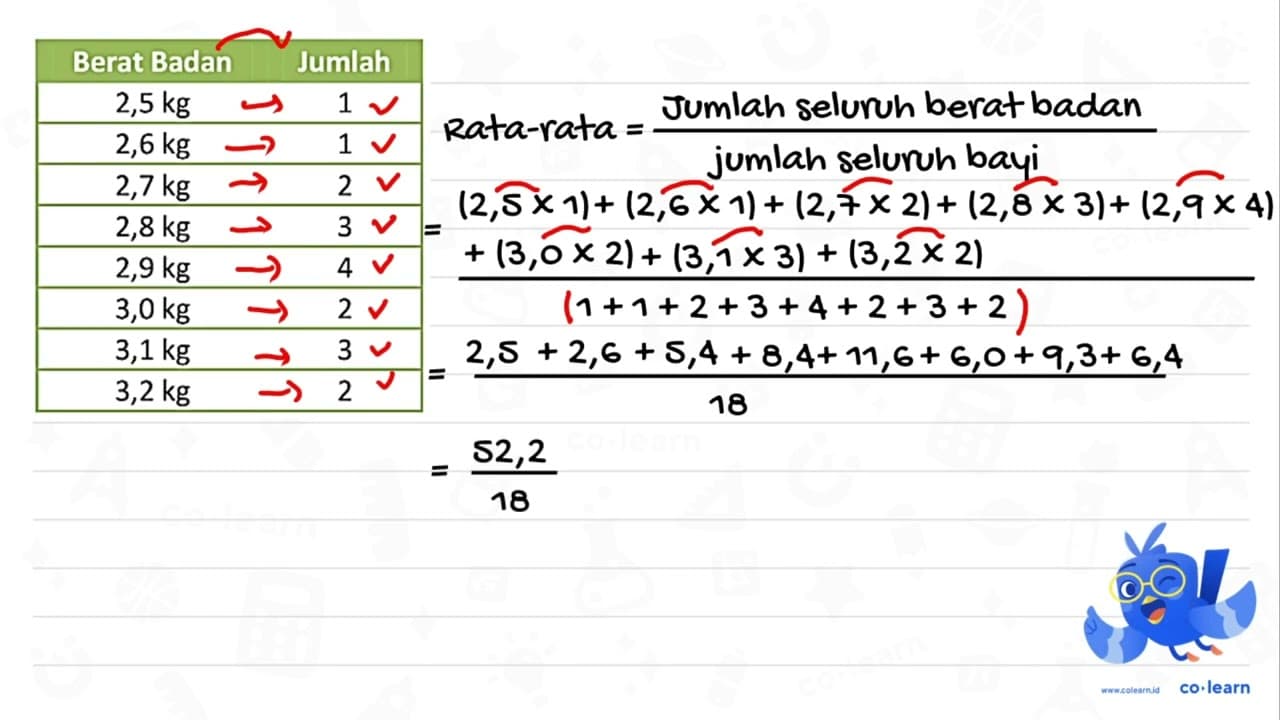 Berat Badan Jumlah
2,5 kg 1
2,6 kg 1
2,7 kg 2
2,8 kg 3
2,9 kg 4
3,0 kg 2
3,1 kg 3
3,2 kg 2
Rata-rata = Jumlah seluruh berat badan
jumlah seluruh bayi
= (2,5 x 1) + (2,6 x 1) + (2,7 x 2) + (2,8 x 3) + (2,9 x 4)
+ (3,0 x 2) + (3,1 x 3) + (3,2 x 2)
(1 + 1 + 2 + 3 + 4 + 2 + 3 + 2)
= 2,5 + 2,6 + 5,4 + 8,4 + 11,6 + 6,0 + 9,3 + 6,4
18
= 52,2
18
co·learn
co·learn
co·learn
www.colearn.id co·learn